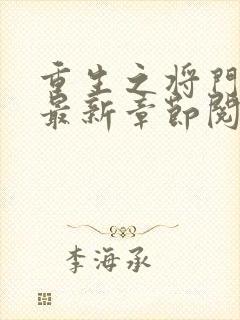 重生之将门
最新章节阅
李海承